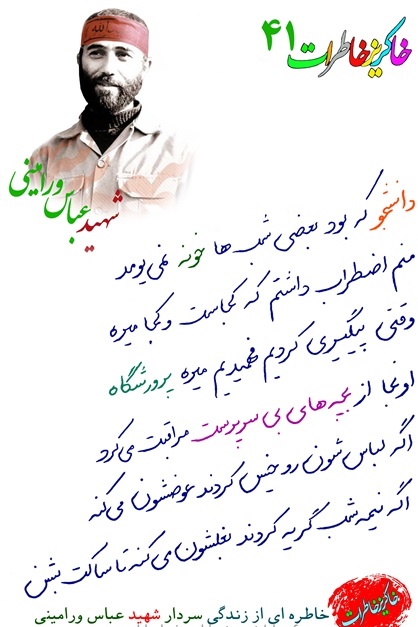 خاکریز خاطرات ۴۱
یاالله
شهید عباس ورامینی
دانشجو که بود بعضی شب ها خونه نمی یومد
منم اضطراب داشتم که کجاست و کجا میره
وقتی پیگیری کردیم فهمیدیم میره پرورشگاه
اونجا از بچه های بی سرپرست مراقبت می کرد
اگه لباس شون رو خیس کردند عوضشون می کنه
اگه نیمه شب گریه کردند بغلشون می کنه تا ساکت بشن
خاکریز خاطرات
خاطره ای از زندگی سردار شهید عباس ورامینی